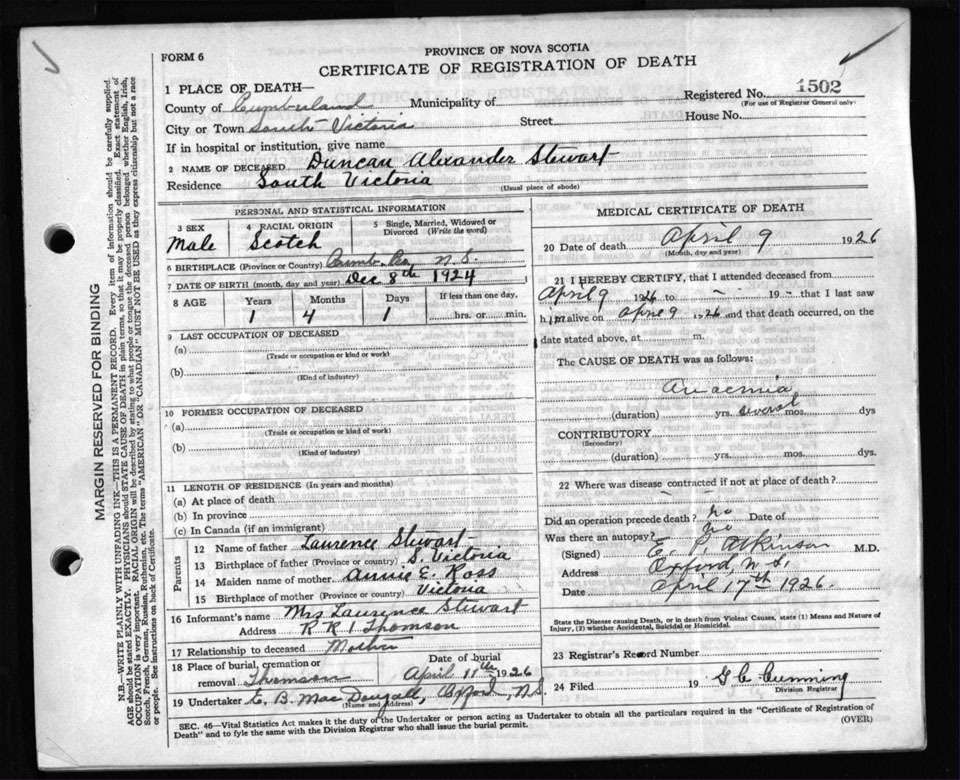 FORM 6
PROVINCE OF NOVA SCOTIA
CERTIFICATE OF REGISTRATION OF DEATH
1 PLACE OF DEATH—
County of Cumberland Municipality of
Registered No. 1502
(For use of Registrar General only)
City or Town South Victoria Street House No.
If in hospital or institution, give name
2 NAME OF DECEASED Duncan Alexander Stewart
Residence South Victoria (Usual place of abode)
PERSONAL AND STATISTICAL INFORMATION
3 SEX Male
4 RACIAL ORIGIN Scotch
5 Single, Married, Widowed or Divorced (Write the word)
6 BIRTHPLACE (Province or Country) Cumb. Co. N.S.
7 DATE OF BIRTH (month, day, and year) Dec 8th 1924
8 AGE Years 1 Months 4 Days 1 If less than one day, hrs. or min.
9 LAST OCCUPATION OF DECEASED
(a) (Trade or occupation or kind or work)
(b) (Kind of industry)
10 FORMER OCCUPATION OF DECEASED
(a) (Trade or occupation or kind of work)
(b) (Kind of industry)
11 LENGTH OF RESIDENCE (In years and months)
(a) At place of death
(b) In province
(c) In Canada (if an immigrant)
Parents
12 Name of father Laurence Stewart
13 Birthplace of father (Province or country) S. Victoria
14 Maiden name of mother Annie E. Ross
15 Birthplace of mother (Province or country) Victoria
16 Informant's name Mrs Laurence Stewart
Address R R 1 Thomson
17 Relationship to deceased Mother
18 Place of burial, cremation or removal Thomson
Date of burial April 11th 1926
19 Undertaker E. B. MacDougall, Oxford, N.S.
(Name and Address)
MEDICAL CERTIFICATE OF DEATH
20 Date of death April 9 1926
(Month, day and year)
21 I HEREBY CERTIFY, that I attended deceased from
April 9 1926 to — 19 — that I last saw
him alive on April 9 1926 and that death occurred, on the
date stated above, at m.
The CAUSE OF DEATH was as follows:
Anaemia
(duration) yrs. several mos. dys
CONTRIBUTORY
(Secondary)
(duration) yrs. mos. dys.
22 Where was disease contracted if not at place of death?
Did an operation precede death? No Date of
Was there an autopsy? No
(Signed) E. P. Atkinson M.D.
Address Oxford, N.S.
Date April 17th 1926.
State the Disease causing Death, or in death from Violent Causes, state (1) Means and Nature of Injury, (2) whether Accidental, Suicidal or Homicidal.
23 Registrar's Record Number
24 Filed 19 G C Cumming
Division Registrar
SEC. 46—Vital Statistics Act makes it the duty of the Undertaker or person acting as Undertaker to obtain all the particulars required in the "Certificate of Registration of
Death" and to fyle the same with the Division Registrar who shall issue the burial permit.
(OVER)
MARGIN RESERVED FOR BINDING
N.B.—WRITE PLAINLY WITH UNFADING INK—THIS IS A PERMANENT RECORD. Every item of information should be carefully supplied.
AGE should be stated EXACTLY. PHYSICIANS should STATE CAUSE OF DEATH in plain terms, so that it may be properly classified. Exact statement of
OCCUPATION is very important. RACIAL ORIGIN will be described by stating to what people or tongue the deceased person belonged whether English, Irish,
Scotch, French, German, Russian, Ruthenian, etc. The terms "AMERICAN" OR "CANADIAN" MUST NOT BE USED as they express citizenship but not a race
or people. See instructions on back of Certificate.